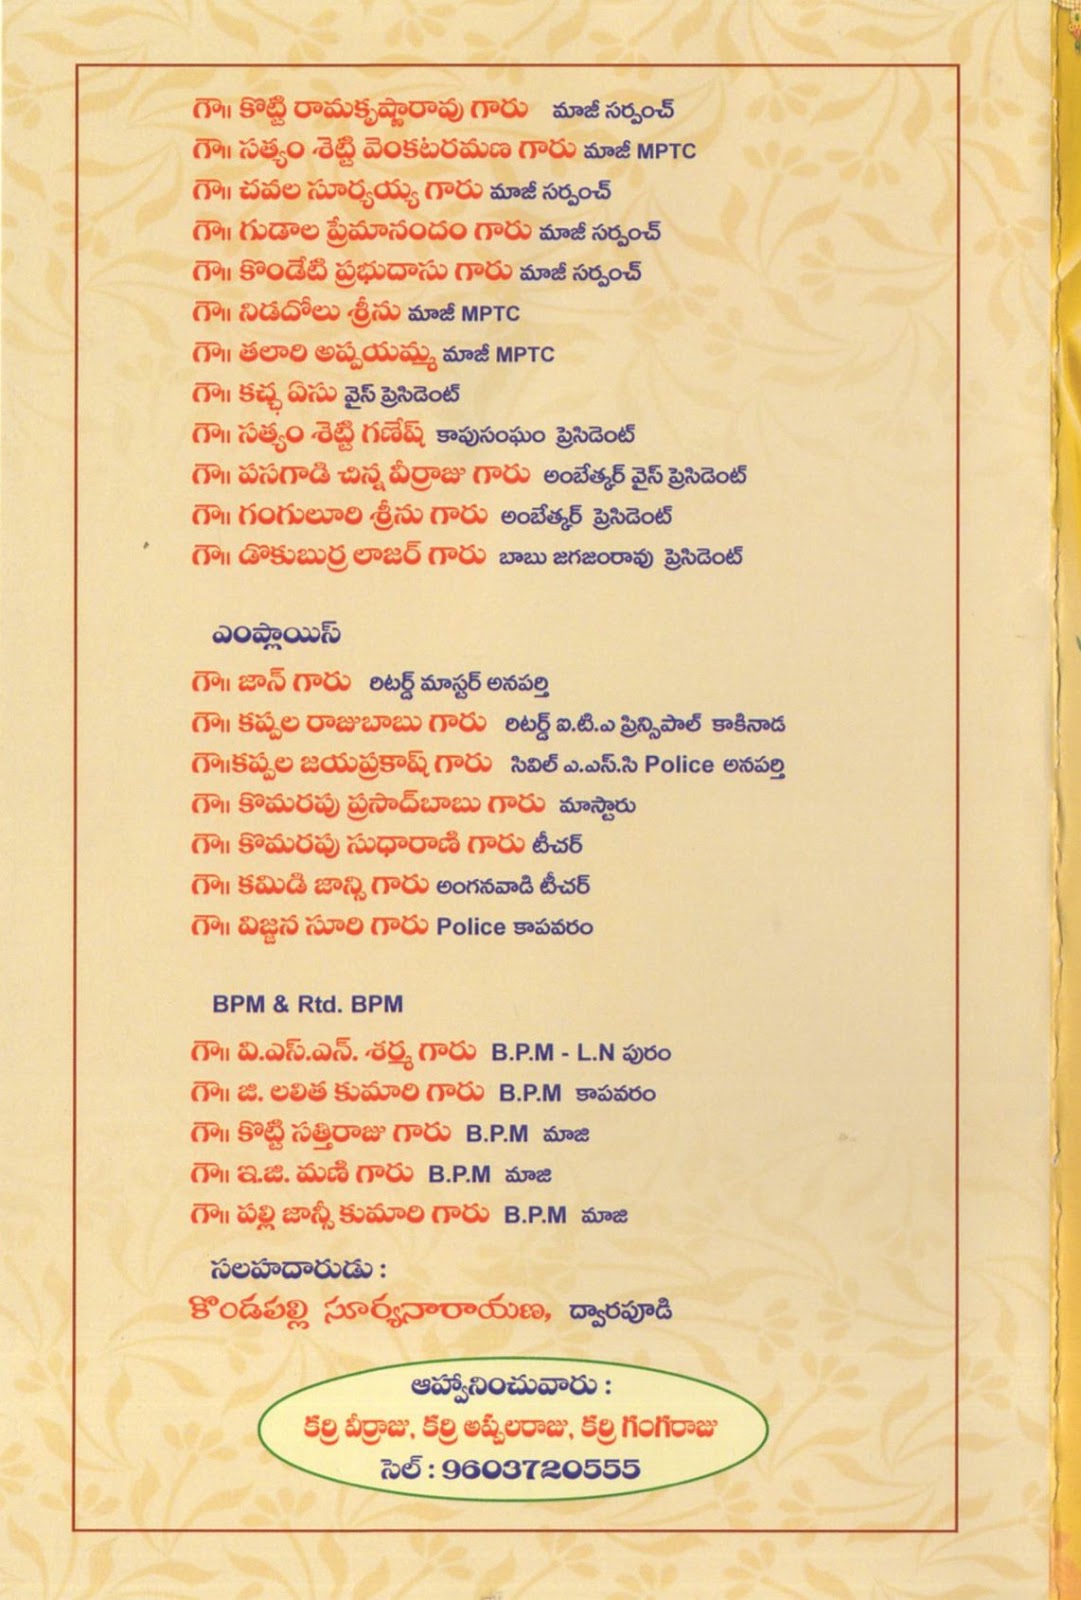 గౌ॥ కొట్టి రామకృష్ణారావు గారు మాజీ సర్పంచ్
గౌ॥ సత్యం శెట్టి వెంకటరమణ గారు మాజీ MPTC
గౌ॥ చవల సూర్యయ్య గారు మాజీ సర్పంచ్
గౌ॥ గుడాల ప్రేమానందం గారు మాజీ సర్పంచ్
గౌ॥ కొండేటి ప్రభుదాసు గారు మాజీ సర్పంచ్
గౌ॥ నిడదోలు శ్రీను మాజీ MPTC
గౌ॥ తలారి అప్పయమ్మ మాజీ MPTC
గౌ॥ కచ్ఛ ఏసు వైస్ ప్రెసిడెంట్
గౌ॥ సత్యం శెట్టి గణేష్ కాపుసంఘం ప్రెసిడెంట్
గౌ॥ పసగాడి చిన్న వీర్రాజు గారు అంబేత్కర్ వైస్ ప్రెసిడెంట్
గౌ॥ గంగులూరి శ్రీను గారు అంబేత్కర్ ప్రెసిడెంట్
గౌ॥ డొకుబుర్ర లాజర్ గారు బాబు జగజంరావు ప్రెసిడెంట్
ఎంప్లాయిస్
గౌ॥ జాన్ గారు రిటర్డ్ మాస్టర్ అనపర్తి
గౌ॥ కప్పల రాజుబాబు గారు రిటర్డ్ ఐ.టి.ఎ ప్రిన్సిపాల్ కాకినాడ
గౌ॥కప్పల జయప్రకాష్ గారు సివిల్ ఎ.ఎస్.సి Police అనపర్తి
గౌ॥ కొమరపు ప్రసాద్‌బాబు గారు మాస్టారు
గౌ॥ కొమరపు సుధారాణి గారు టీచర్
గౌ॥ కమిడి జాన్సి గారు అంగనవాడి టీచర్
గౌ॥ విజ్జన సూరి గారు Police కాపవరం
BPM & Rtd. BPM
గౌ॥ వి.ఎస్.ఎన్. శర్మ గారు B.P.M - L.N పురం
గౌ॥ జి. లలిత కుమారి గారు B.P.M కాపవరం
గౌ॥ కొట్టి సత్తిరాజు గారు B.P.M మాజి
గౌ॥ ఇ.జి. మణి గారు B.P.M మాజి
గౌ॥ పల్లి జాన్సీ కుమారి గారు B.P.M మాజి
సలహదారుడు :
కొండపల్లి సూర్యనారాయణ, ద్వారపూడి
ఆహ్వానించువారు :
కర్రి వీర్రాజు, కర్రి అప్పలరాజు, కర్రి గంగరాజు
సెల్ : 9603720555